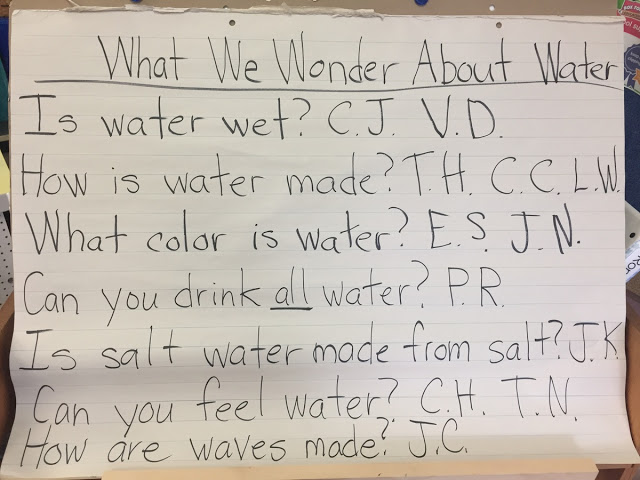 What We Wonder About Water
Is water wet? C.J. V.D.
How is water made? T.H. C.C. L.W.
What color is water? E.S. J.N.
Can you drink all water? P.R.
Is salt water made from salt? J.K
Can you feel water? C.H. T.N.
How are waves made? J.C.